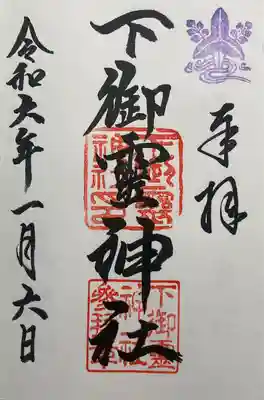 奉拝
下御霊神社
下御霊
神社
参拝証
令和六年一月六日